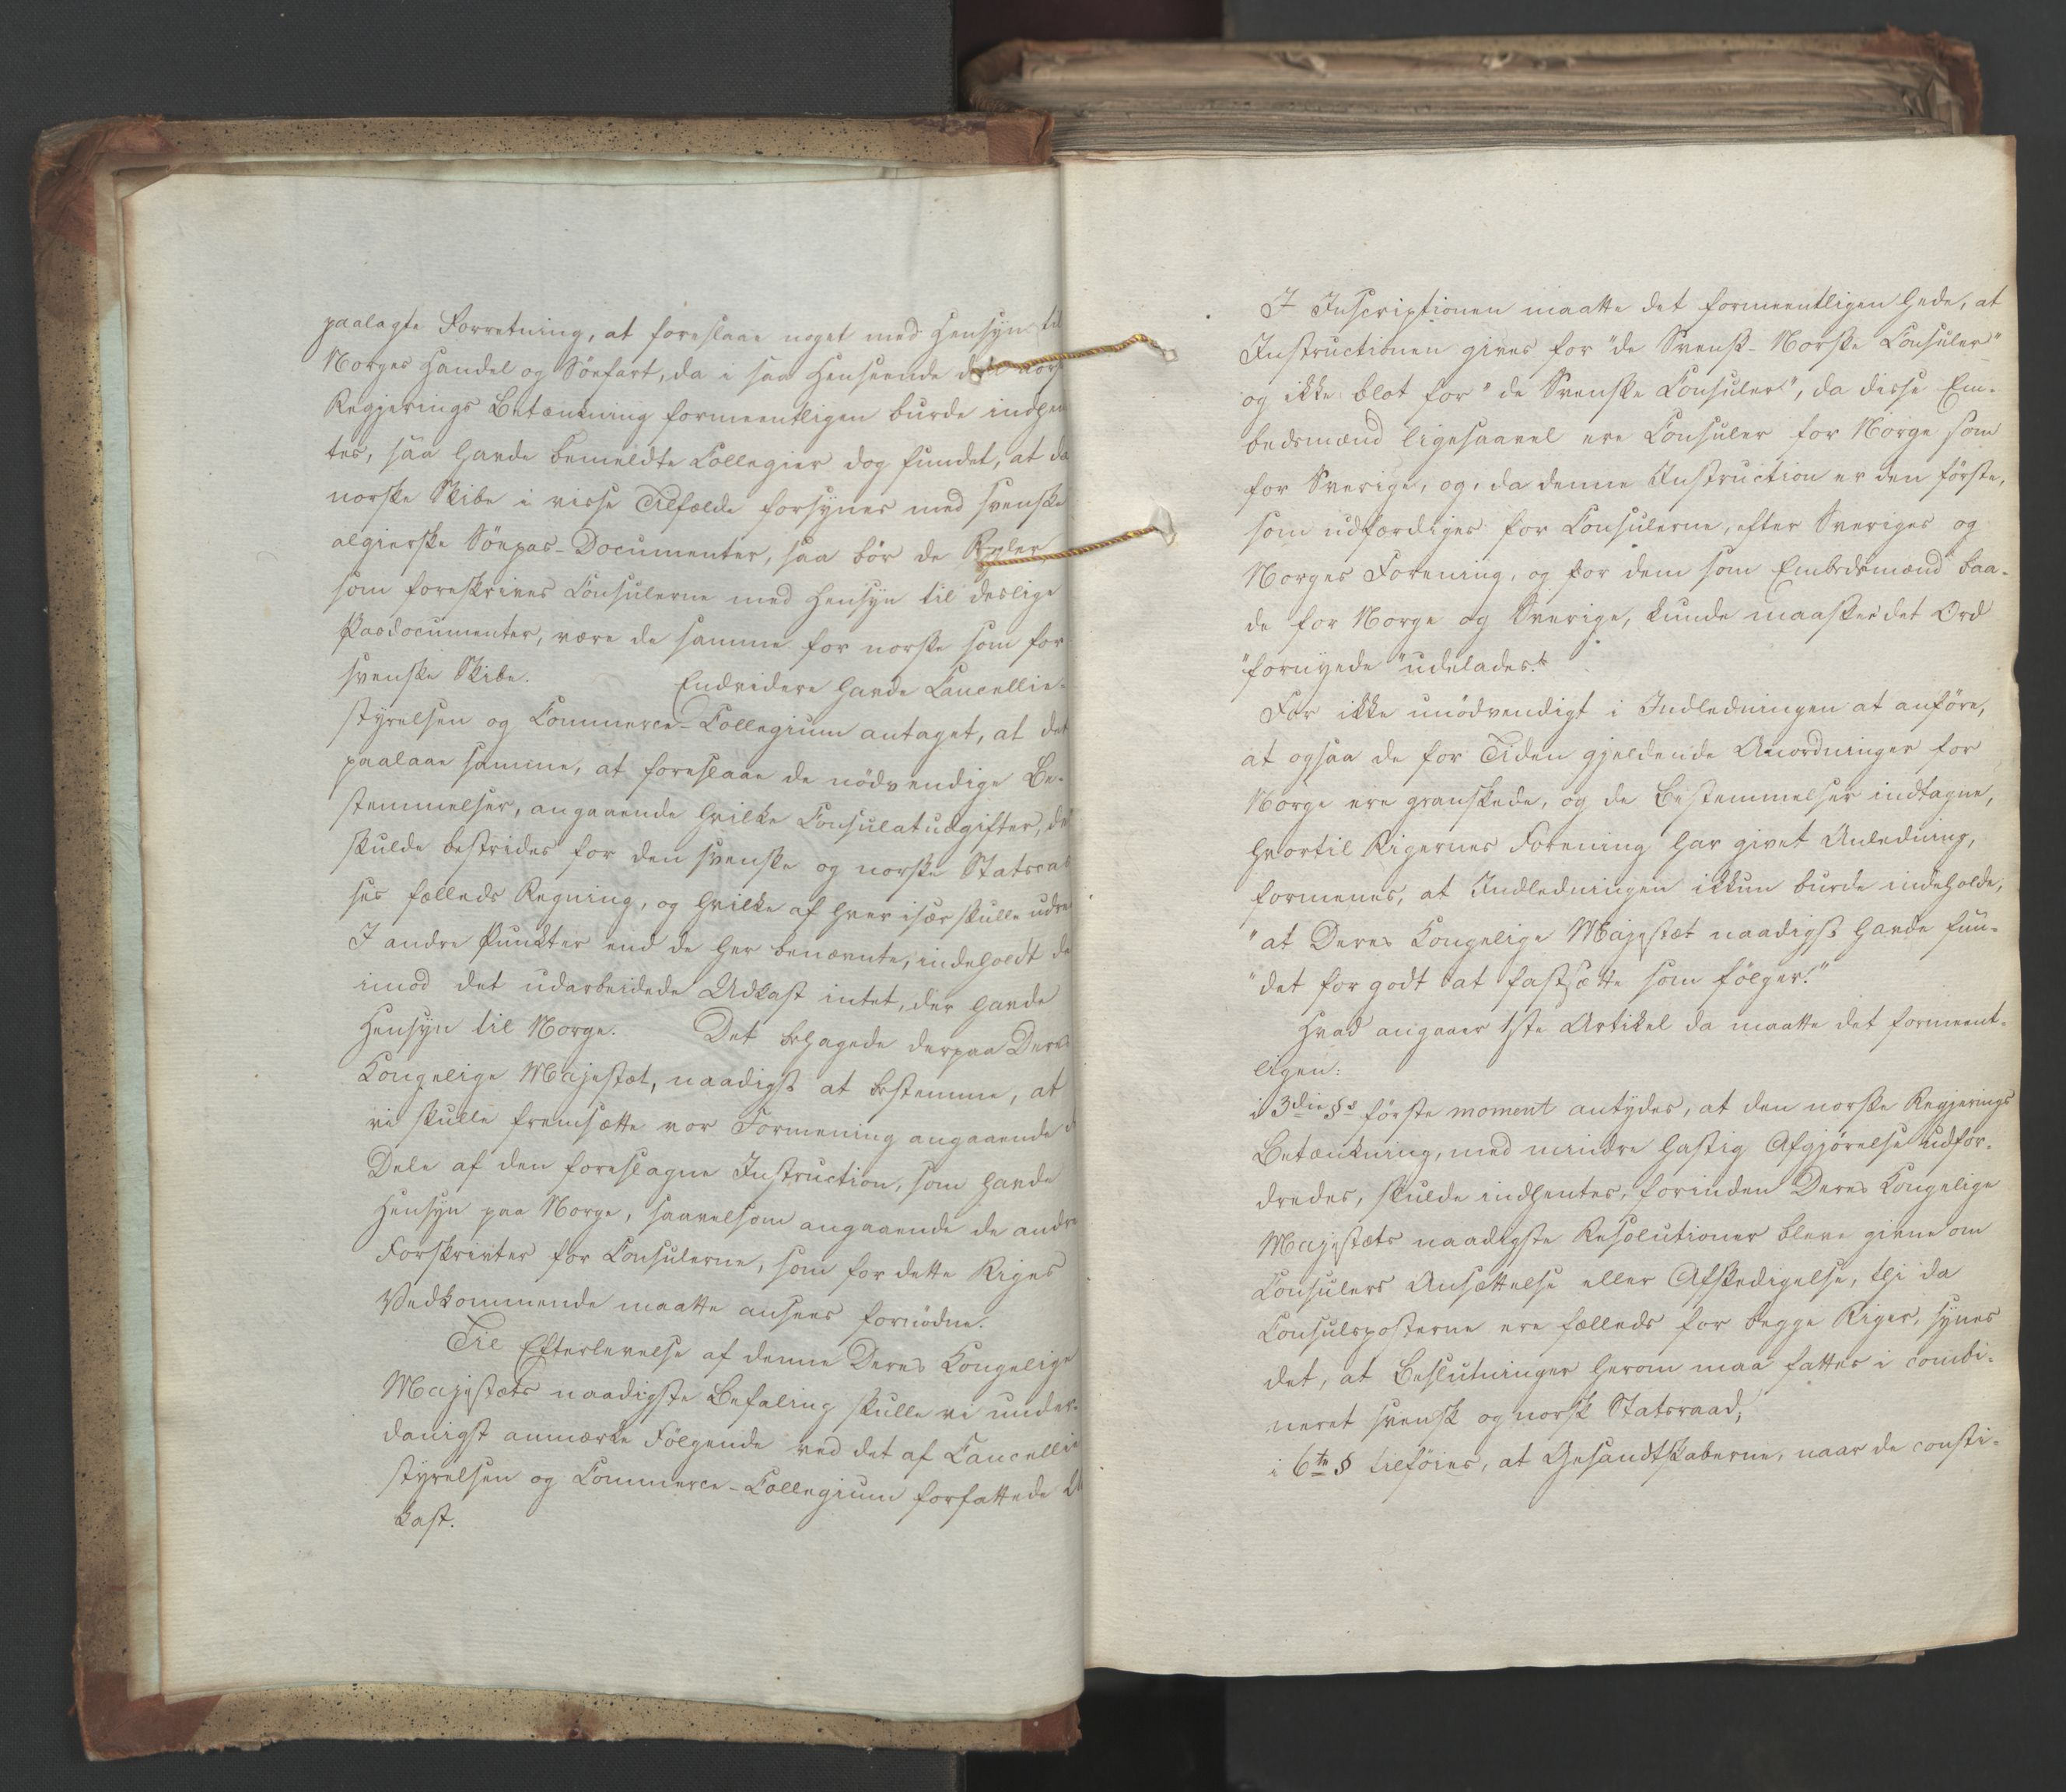 paalagte Forretning, at foreslaae noget med Hensyn til
Norges Handel og Söefart, da i saa Henseende den nor
Regjerings Betænkning formeentligen burde indhen
tes, saa havde bemeldte Collegier dog fundet, at da
norske Skibe i visse Tilfælde forsynes med svenske
algierske Söepas-Documenter, saa bör de Regler,
som foreskrives Consulerne med Hensyn til deslige
Pasdocumenter, være de samme for norske som for
svenske Skibe. Endvidere havde Cancellie-
styrelsen og Commerce-Collegium antaget, at det
paalaae samme, at foreslaae de nödvendige Be-
stemmelser, angaaende hvilke Consulatudgifter, der
skulde bestrides for den svenske og norske Statscas
ses fælleds Regning, og hvilke af hver især skulle udre
I andre Punkter end de her benævnte, indeholdt der
imod det udarbeidede Udkast intet, der havde
Hensyn til Norge. Det behagede derpaa Deres
Kongelige Majestæt, naadigst at bestemme, at
vi skulle fremsætte vor Formening angaaende d
Dele af den foreslagne Instruction, som havde
Hensyn paa Norge, saavelsom angaaende de andre
Forskrivter for Consulerne, som for dette Riges
Vedkommende maatte ansees fornödne.
Til Efterlevelse af denne Deres Kongelige
Majestæts naadigste Befaling skulle vi under-
danigst anmærke Fölgende ved det af Cancellie
styrelsen og Commerce-Collegium forfattede Ud
kast.
I Inscriptionen maatte det formeentligen hede, at
Instructionen gives for "de Svensk-Norske Consuler"
og ikke blot for "de Svenske Consuler", da disse Em-
bedsmænd ligesaavel ere Consuler for Norge som
for Sverige, og, da denne Instruction er den förste,
som udfærdiges for Consulerne, efter Sveriges og
Norges Forening, og for dem som Embedsmænd baa-
de for Norge og Sverige, kunde maaskee det Ord
"fornyede" udelades.
For ikke unödvendigt i Indledningen at anföre,
at ogsaa de for Tiden gjeldende Anordninger for
Norge ere granskede, og de Bestemmelser indtagne,
hvortil Rigernes Forening har givet Anledning,
formenes, at Indledningen ikkun burde indeholde,
"at Deres Kongelige Majestæt naadigst havde fun-
"det for godt at fastsætte som fölger."
Hvad angaaer 1ste Artikel da maatte det formeent-
ligen:
i 3die §s förste moment antydes, at den norske Regjerings
Betænkning, med mindre hastig Afgjörelse udfor-
dredes, skulde indhentes, forinden Deres Kongelige
Majestæts naadigste Resolutioner bleve givne om
Consulers Ansættelse eller Afskedigelse, thi da
Consulsposterne ere fælleds for begge Riger, synes
det, at Beslutninger herom maa fattes i combi-
neret svensk og norsk Statsraad;
i 6te § tilföies, at Gesandtskaberne, naar de consti-